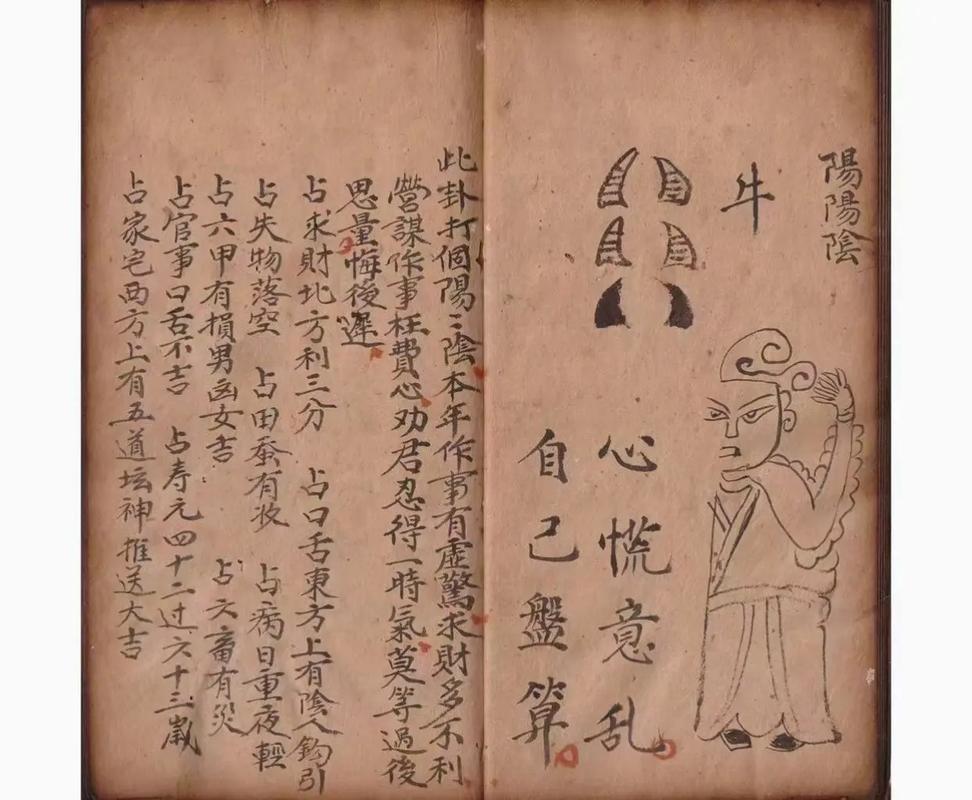 陽陽陰
牛
心慌意乱
自己盤算
此卦打個陽二陰本年作事有虚驚求財多不利
營謀作事枉費心劝君忍得一時氣莫等過後
思量悔後遲
占求財北方利三分 占口舌東方上有陰人鈎引
占失物落空 占田蚕有收 占病日重夜輕
占六甲有損男凶女吉 占六畜有災
占官事口舌不吉 占寿元四十二过六十三歲
占家宅西方上有五道坛神推送大吉